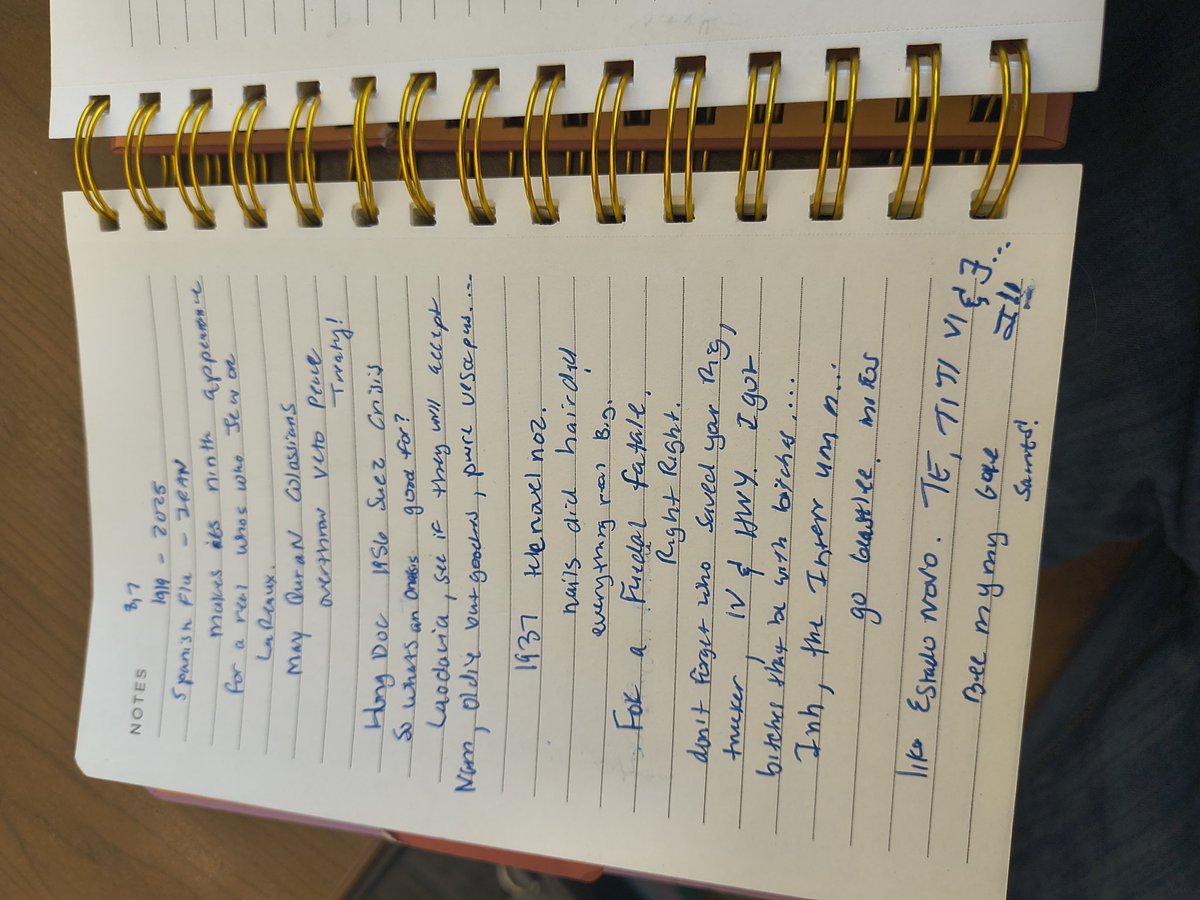 NOTES 37
1919 - 2025
Spanish Flu - IRAN
makes its ninth appearance
for a real whos who Jew or
LaReaux.
May QuraN Colossians
overthrow veto Peace
Treaty!
Hong Doc 1956 Suez Crisis
So whats an onasis good for?
Laodacia, see if they will accept
Nam, oldie but goodies, pure vesapus....
1937 telenovel noz.
nails did hair did
everything real Big.
For a Fuedal fatale.
Right Right.
dont forget who saved your Rig,
trucker, IV & HWY. I got
bitches that be with bitches,...
Inh, the Interr um n...
go beastlee. mikes
like Estado Novo. TE, TI TI VI & J...
Bee mymy Gone III
Saints!